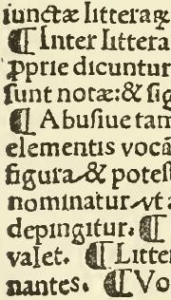 iunctæ litteraꝝ
¶ Inter littera
ꝓprie dicuntur
ſunt notæ:& ſig
¶ Abuſiue tam
elementis vocã
figura & poteſ
nominatur vt a
depingitur. ¶
valet. ¶ Litter
nantes. ¶ Vo